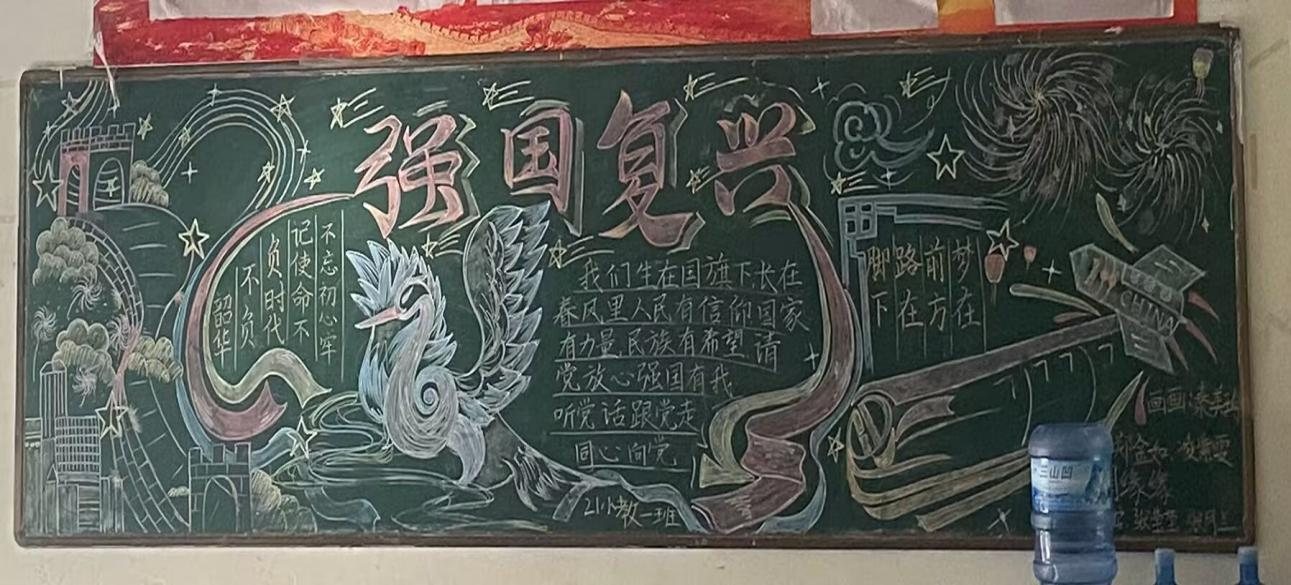 强国复兴
不忘初心牢
记使命不
负时代
不负
韶华
我们生在国旗下长在
春风里人民有信仰国家
有力量民族有希望请
党放心强国有我
听党话跟党走
同心向党
21小教一班
梦在
前方
路在
脚下
CHINA
画画:
金如
三山凹